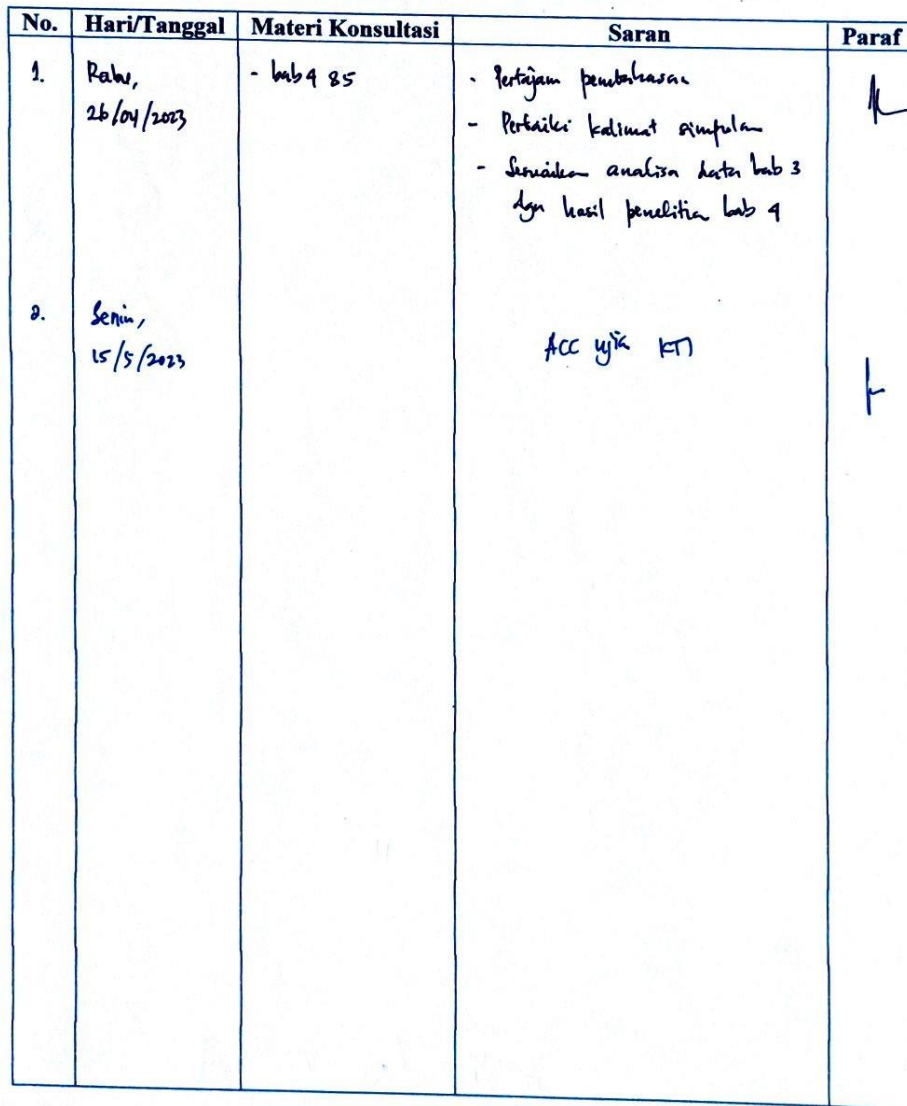 No. Hari/Tanggal Materi Konsultasi Saran Paraf
1. Rabu, - bab 4 & 5 - Pertajam pembahasan
26/04/2023 - Perbaiki kalimat simpulan
- Sesuaikan analisa data bab 3
dgn hasil penelitian bab 4
2. Senin,
15/5/2023 ACC ujian KTI